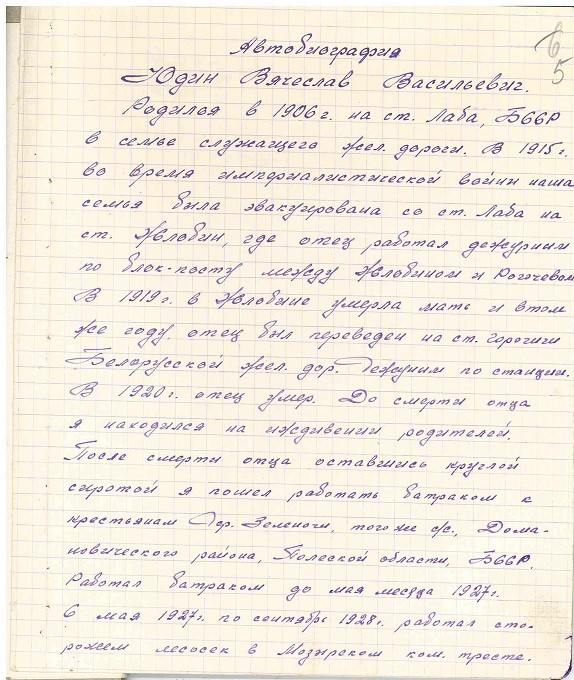 6
5
Автобиография
Юдин Вячеслав Васильевич.
Родился в 1906 г. на ст. Лаба, БССР
в семье служащего жел. дороги. В 1915 г.
во время империалистической войны наша
семья была эвакуирована со ст. Лаба на
ст. Жлобин, где отец работал дежурным
по блок-посту между Жлобином и Рогачевом
В 1919 г. в Жлобине умерла мать и в том
же году отец был переведен на ст.
Белорусской жел. дор. Дежурным по станции.
В 1920 г. отец умер. До смерти отца
я находился на иждивении родителей.
После смерти отца оставшись круглой
сиротой я пошел работать батраком к
крестьянам дер. Зеленочи, того же с/с, Дома-
новичского района, Полеской области, БССР.
Работал батраком до мая месяца 1927 г.
С мая 1927 г. по сентябрь 1928 г. работал сто-
рожем лесосек в Мозырском ком. тресте.